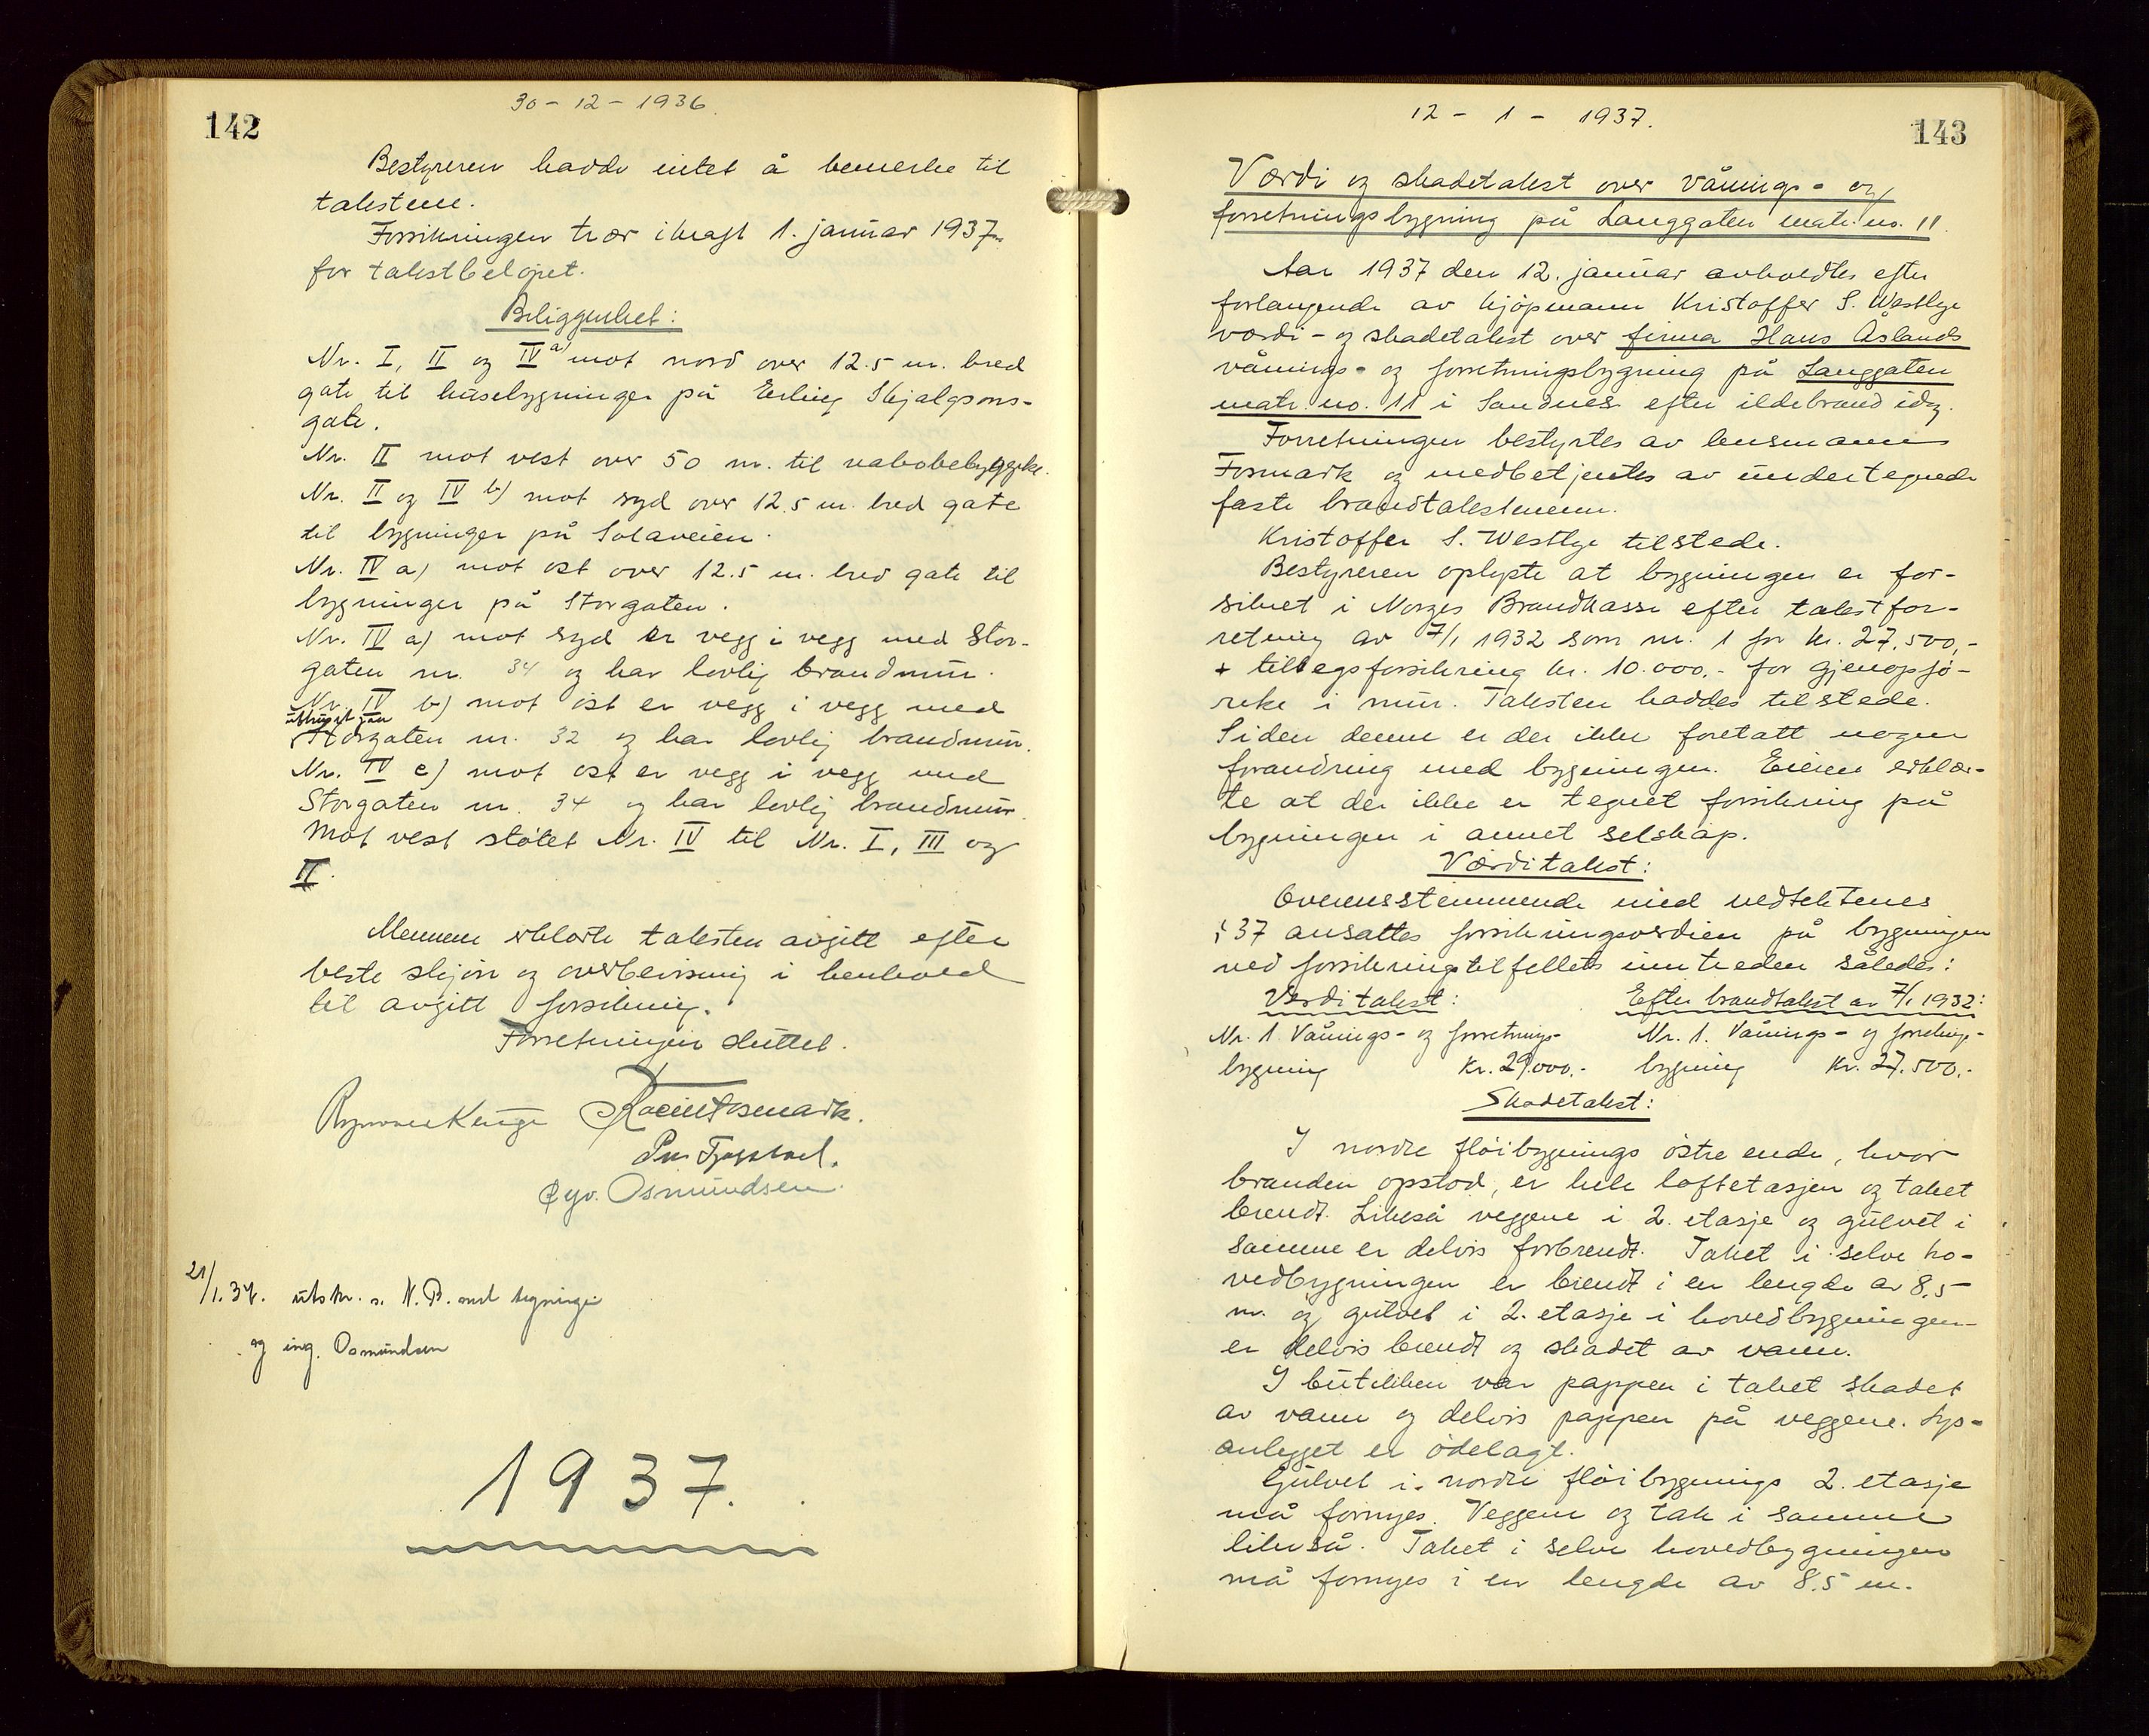 30 - 12 - 1936.
142
Bestyreren hadde intet å bemerke til
takstene.
Forsikringen trær ikraft 1. januar 1937
for takstbeløpet.
Beliggenhet:
Nr. I, II og IV a) mot nord over 12.5 m. bred
gate til husebygninger på Erling Skjalgsons-
gate.
Nr. II mot vest over 50 m. til nabobebyggelse.
Nr. II og IV b) mot syd over 12.5 m. bred gate
til bygninger på Solaveien.
Nr. IV a) mot øst over 12.5 m. bred gate til
bygninger på Storgaten.
Nr. IV a) mot syd er vegg i vegg med Stor-
gaten nr. 34 og har lovlig brandmur.
Nr. IV b) mot øst er vegg i vegg med
uthuset paa
Storgaten nr. 32 og har lovlig brandmur.
Nr. IV c) mot øst er vegg i vegg med
Storgaten nr. 34 og har lovlig brandmur.
Mot vest støtet Nr. IV til Nr. I, III og
II.
Mennene erklærte taksten avgitt efter
beste skjøn og overbevisning i henhold
til avgitt forsikring.
Forretningen sluttet.
Rasmus Kenge Fosmark.
Per Tjøsstvel.
Ø. Osmundsen.
21/1.37. utskr. s. N.B. med tegninger
og ing. Osmundsen
1937.
12 - 1 - 1937.
143
Værdi og skadetakst over vånings- og
forretningsbygning på Langgaten matr. no. 11.
Aar 1937 den 12. januar avholdtes efter
forlangende av kjøpmann Kristoffer S. Westlye
værdi- og skadetakst over firma Hans Åslands
vånings- og forretningsbygning på Langgaten
matr. no. 11 i Sandnes efter ildebrand idag.
Forretningen bestyrtes av lensmann
Fosmark og medbetjentes av undertegnede
faste brandtakstmenn.
Kristoffer S. Westlye tilstede.
Bestyreren oplyste at bygningen er for-
sikret i Norges Brandkasse efter takstfor-
retning av 7/1 1932 som nr. 1 for kr. 27.500,-
+ tillegsforsikring kr. 10.000.- for gjenopfø-
relse i mur. Taksten haddes tilstede.
Siden denne er der ikke foretatt nogen
forandring med bygningen. Eieren erklær-
te at der ikke er tegnet forsikring på
bygningen i annet selskap.
Værditakst:
Overensstemmende med vedtektenes
§ 37 ansattes forsikringsverdien på bygningen
ved forsikringstilfellets inntreden således:
Verditakst: Efter brandtakst av 7/1 1932:
Nr. 1. Vånings- og forretnings- Nr. 1. Vånings- og forretnings-
bygning Kr. 29.000.- bygning Kr. 27.500.-
Skadetakst:
I nordre fløibygnings østre ende, hvor
branden opstod, er hele loftetasjen og taket
brendt. Likeså veggene i 2. etasje og gulvet i
samme er delvis forbrendt. Taket i selve ho-
vedbygningen er brendt i en lengde av 8,5
m. og gulvet i 2. etasje i hovedbygningen
er delvis brendt og skadet av vann.
I butikken var pappen i taket skadet
av vann og delvis pappen på veggene. Lys-
anlegget er ødelagt.
Gulvet i nordre fløibygnings 2. etasje
må fornyes. Veggene og tak i samme
likeså. Taket i selve hovedbygningen
må fornyes i en lengde av 8,5 m.